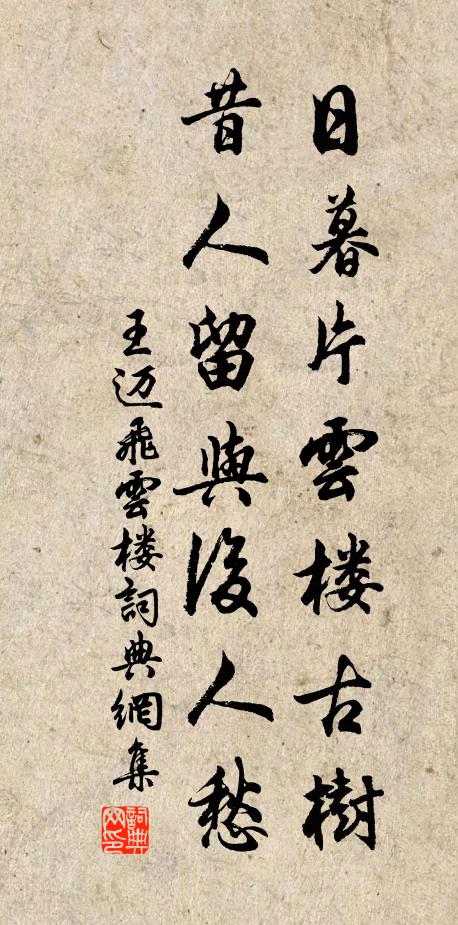 日暮片雲楼古樹
昔人留與後人愁
王迈飛雲楼詞典網集
詞典网印